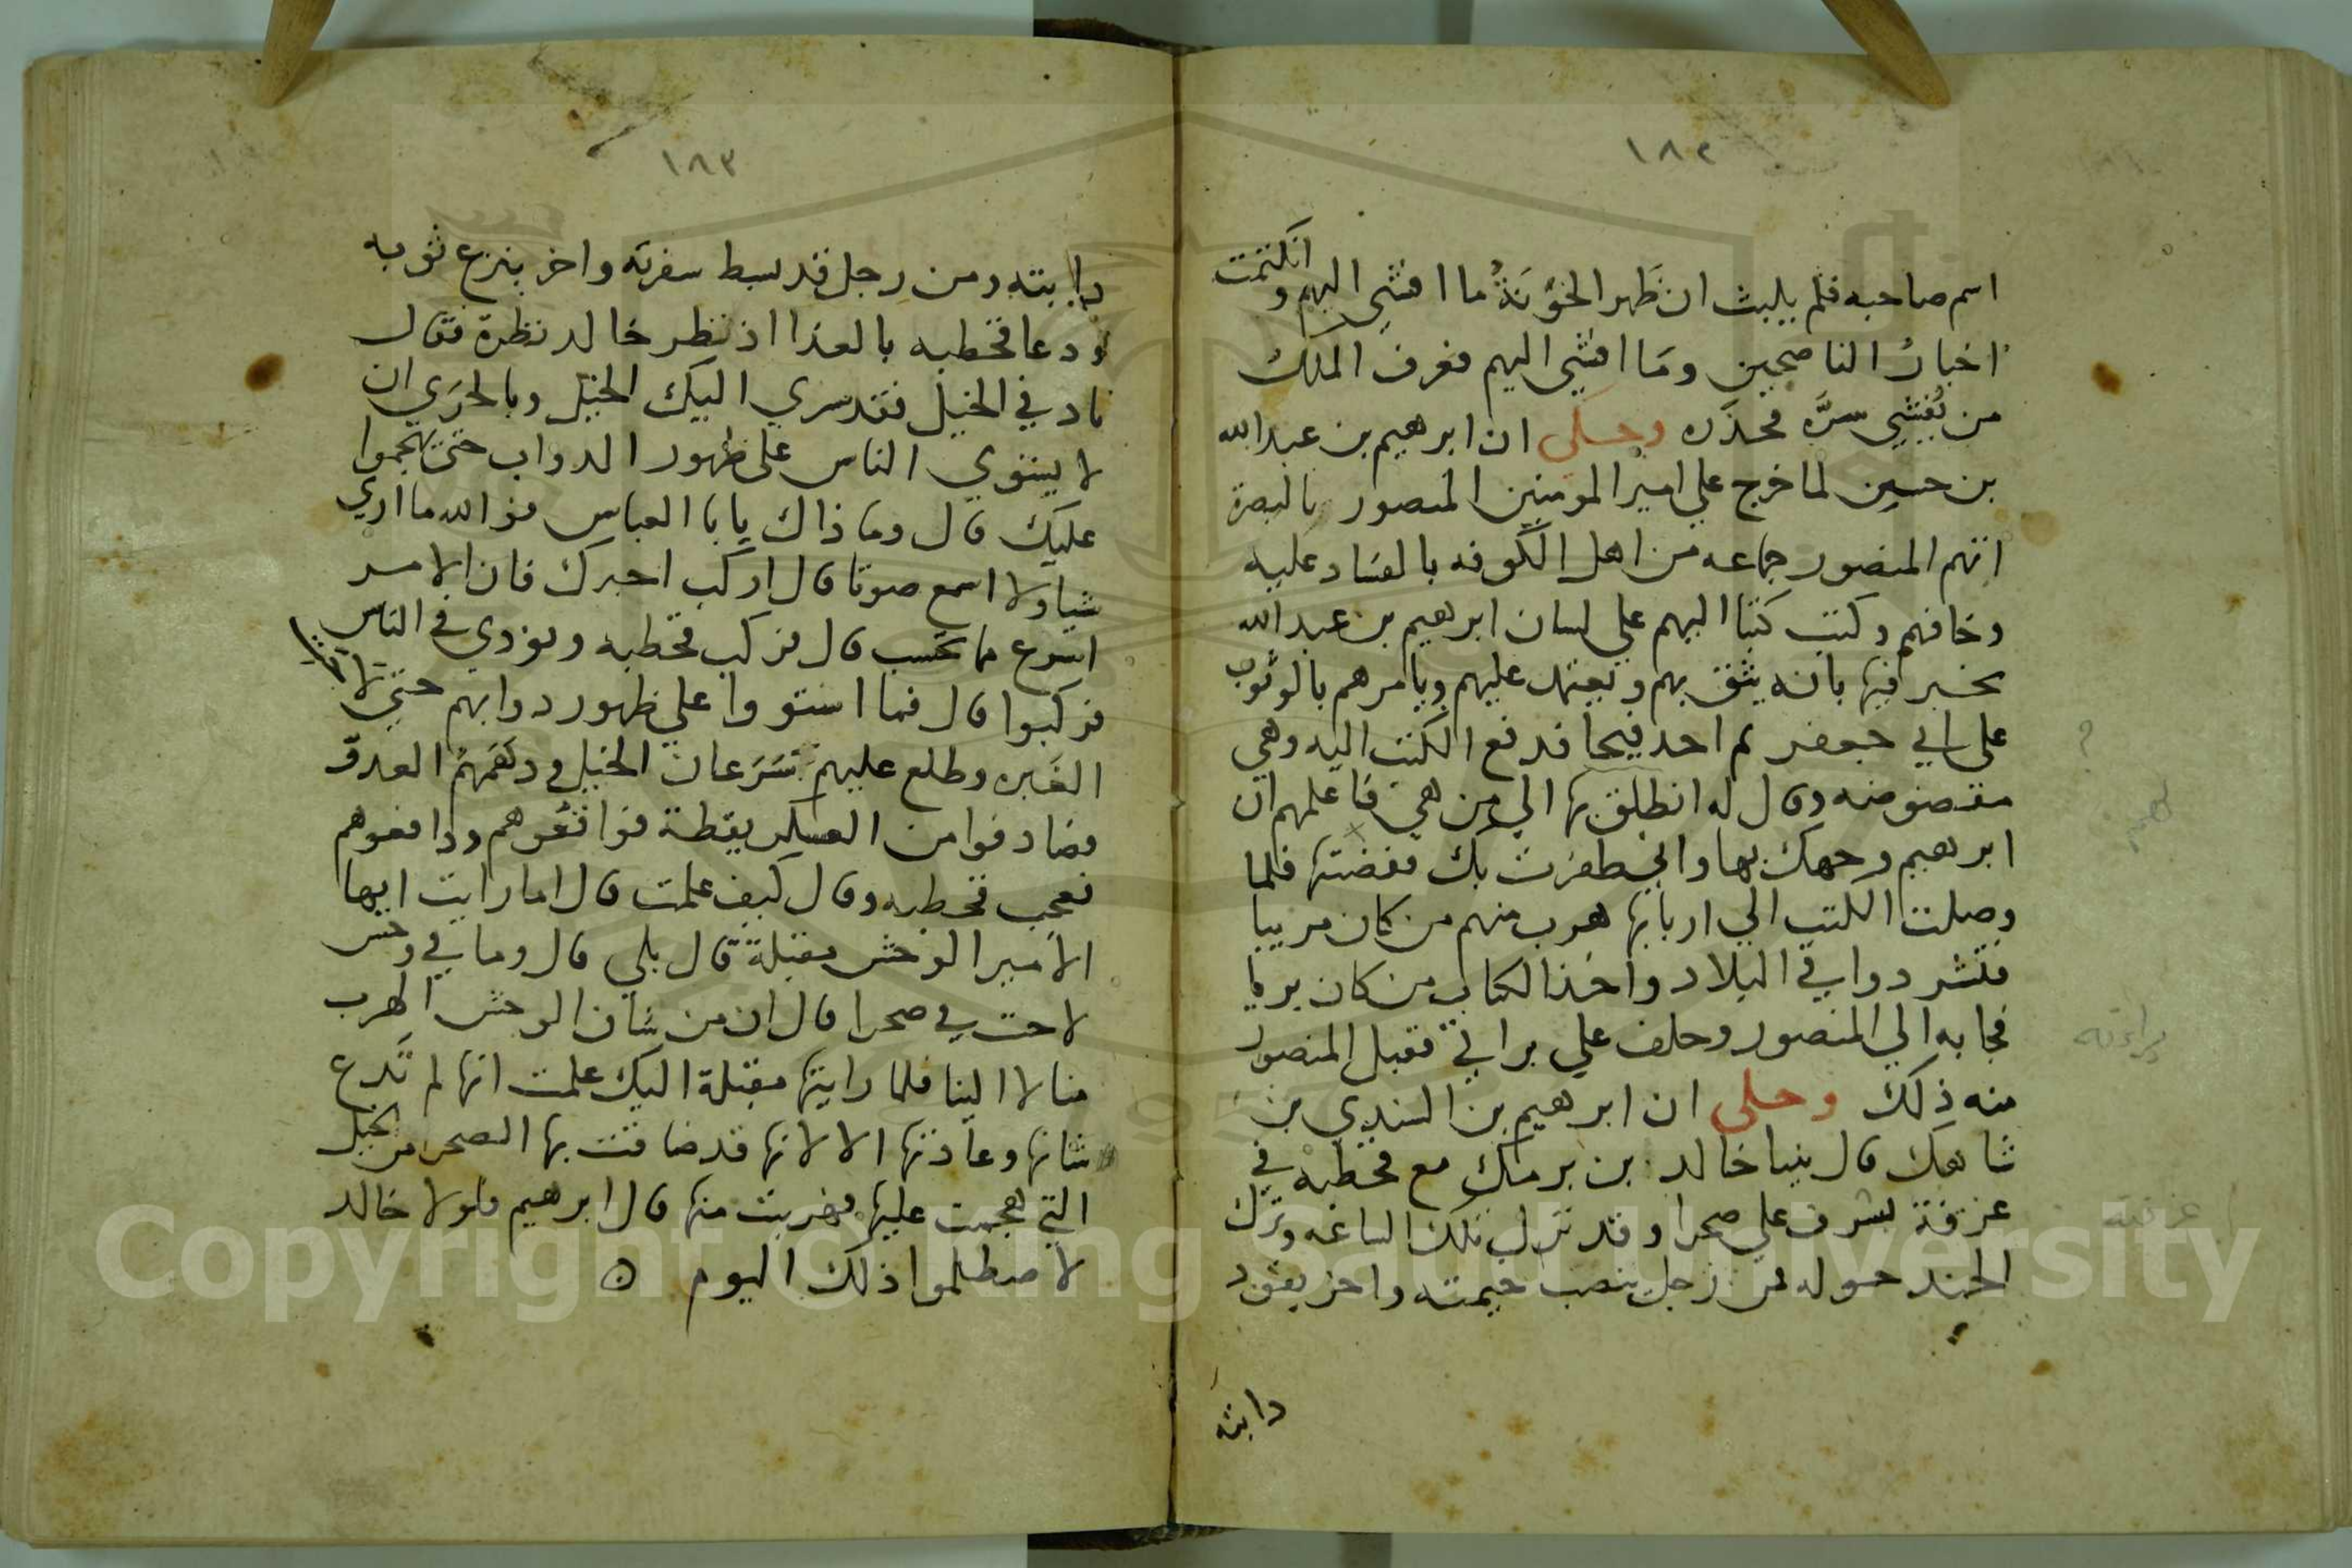 ١٨٢
اسم صاحبه فلم يلبث ان ظهر الخوَنَةُ ما افشي اليهم وانكتمت
اخبارُ الناصحين ومَا افشي اليهم فعرف الملك
من يُفشِي سرَّه فحذره وحكى ان ابرهيم بن عبد الله
بن حسين لما خرج علي امير المومنين المنصور بالبصرة
اتهم المنصور جماعه من اهل الكوفه بالفساد عليه
وخافهم وكتب كتبا اليهم علي لسان ابرهيم بن عبد الله
يخبر فيها بانه يثق بهم ويعتمد عليهم ويامرهم بالوثوب
على ابي جعفر ثم احد فيحا فدفع الكتب اليه وهي
مفضوضه وقال له انطلق بها الي من هي فاعلمهم ان
ابرهيم وجهك بها واني ظفرت بك ففضتها فلما
وصلت الكتب الي اربابها هرب منهم من كان مريبا
فتشردوا في البلاد واخذ الكتاب من كان بريا
فجا به الي المنصور وحلف علي براتي فقبل المنصور
منه ذلك وحكى ان ابرهيم بن السندي بن
شاهك قال بينا خالد بن برمك مع قحطبه في
غرفة يشرف علي صحرا وقد نزل تلك الساعه ونزل
الجند حوله من رجل ينصب خيمته واخر يقود
دابته
لهم
براته
غرفته
١٨٣
دابته ومن رجل قد بسط سفرته واخر ينزع ثوبه
ودعا قحطبه بالغذا اذ نظر خالد نظرة فقال
ناد في الخيل فقد سري اليك الخيل وبالحرَي ان
لا يستوي الناس على ظهور الدواب حتى تهجموا
عليك قال وما ذاك يابا العباس فوالله ما اري
شيا ولا اسمع صوتا قال اركب اخبرك فان الامر
اسرع مما تحسب قال فركب قحطبه ونودي في الناس
فركبوا قال فما استووا علي ظهور دوابهم حتي لاقتها
الغَبره وطلع عليهم سَرَعان الخيل ودهَمَهُم العدوّ
فصادفوا من العسكر يقظة فواقعُوهم ودافعوهم
فعجب قحطبه وقال كيف علمت قال اما رايت ايها
الامير الوحش مقبلة قال بلي قال وما في وحش
لاحت في صحرا قال ان من شان الوحش الهرب
منا لا الينا فلما رايتها مقبلة اليك علمت انها لم تَدع
شانها وعادتها الا لانها قد ضاقت بها الصحرا من الخيل
التي هجمت عليها فهربت منها قال ابرهيم فلولا خالد
لاصطلموا ذلك اليوم
Copyright © King Saud University